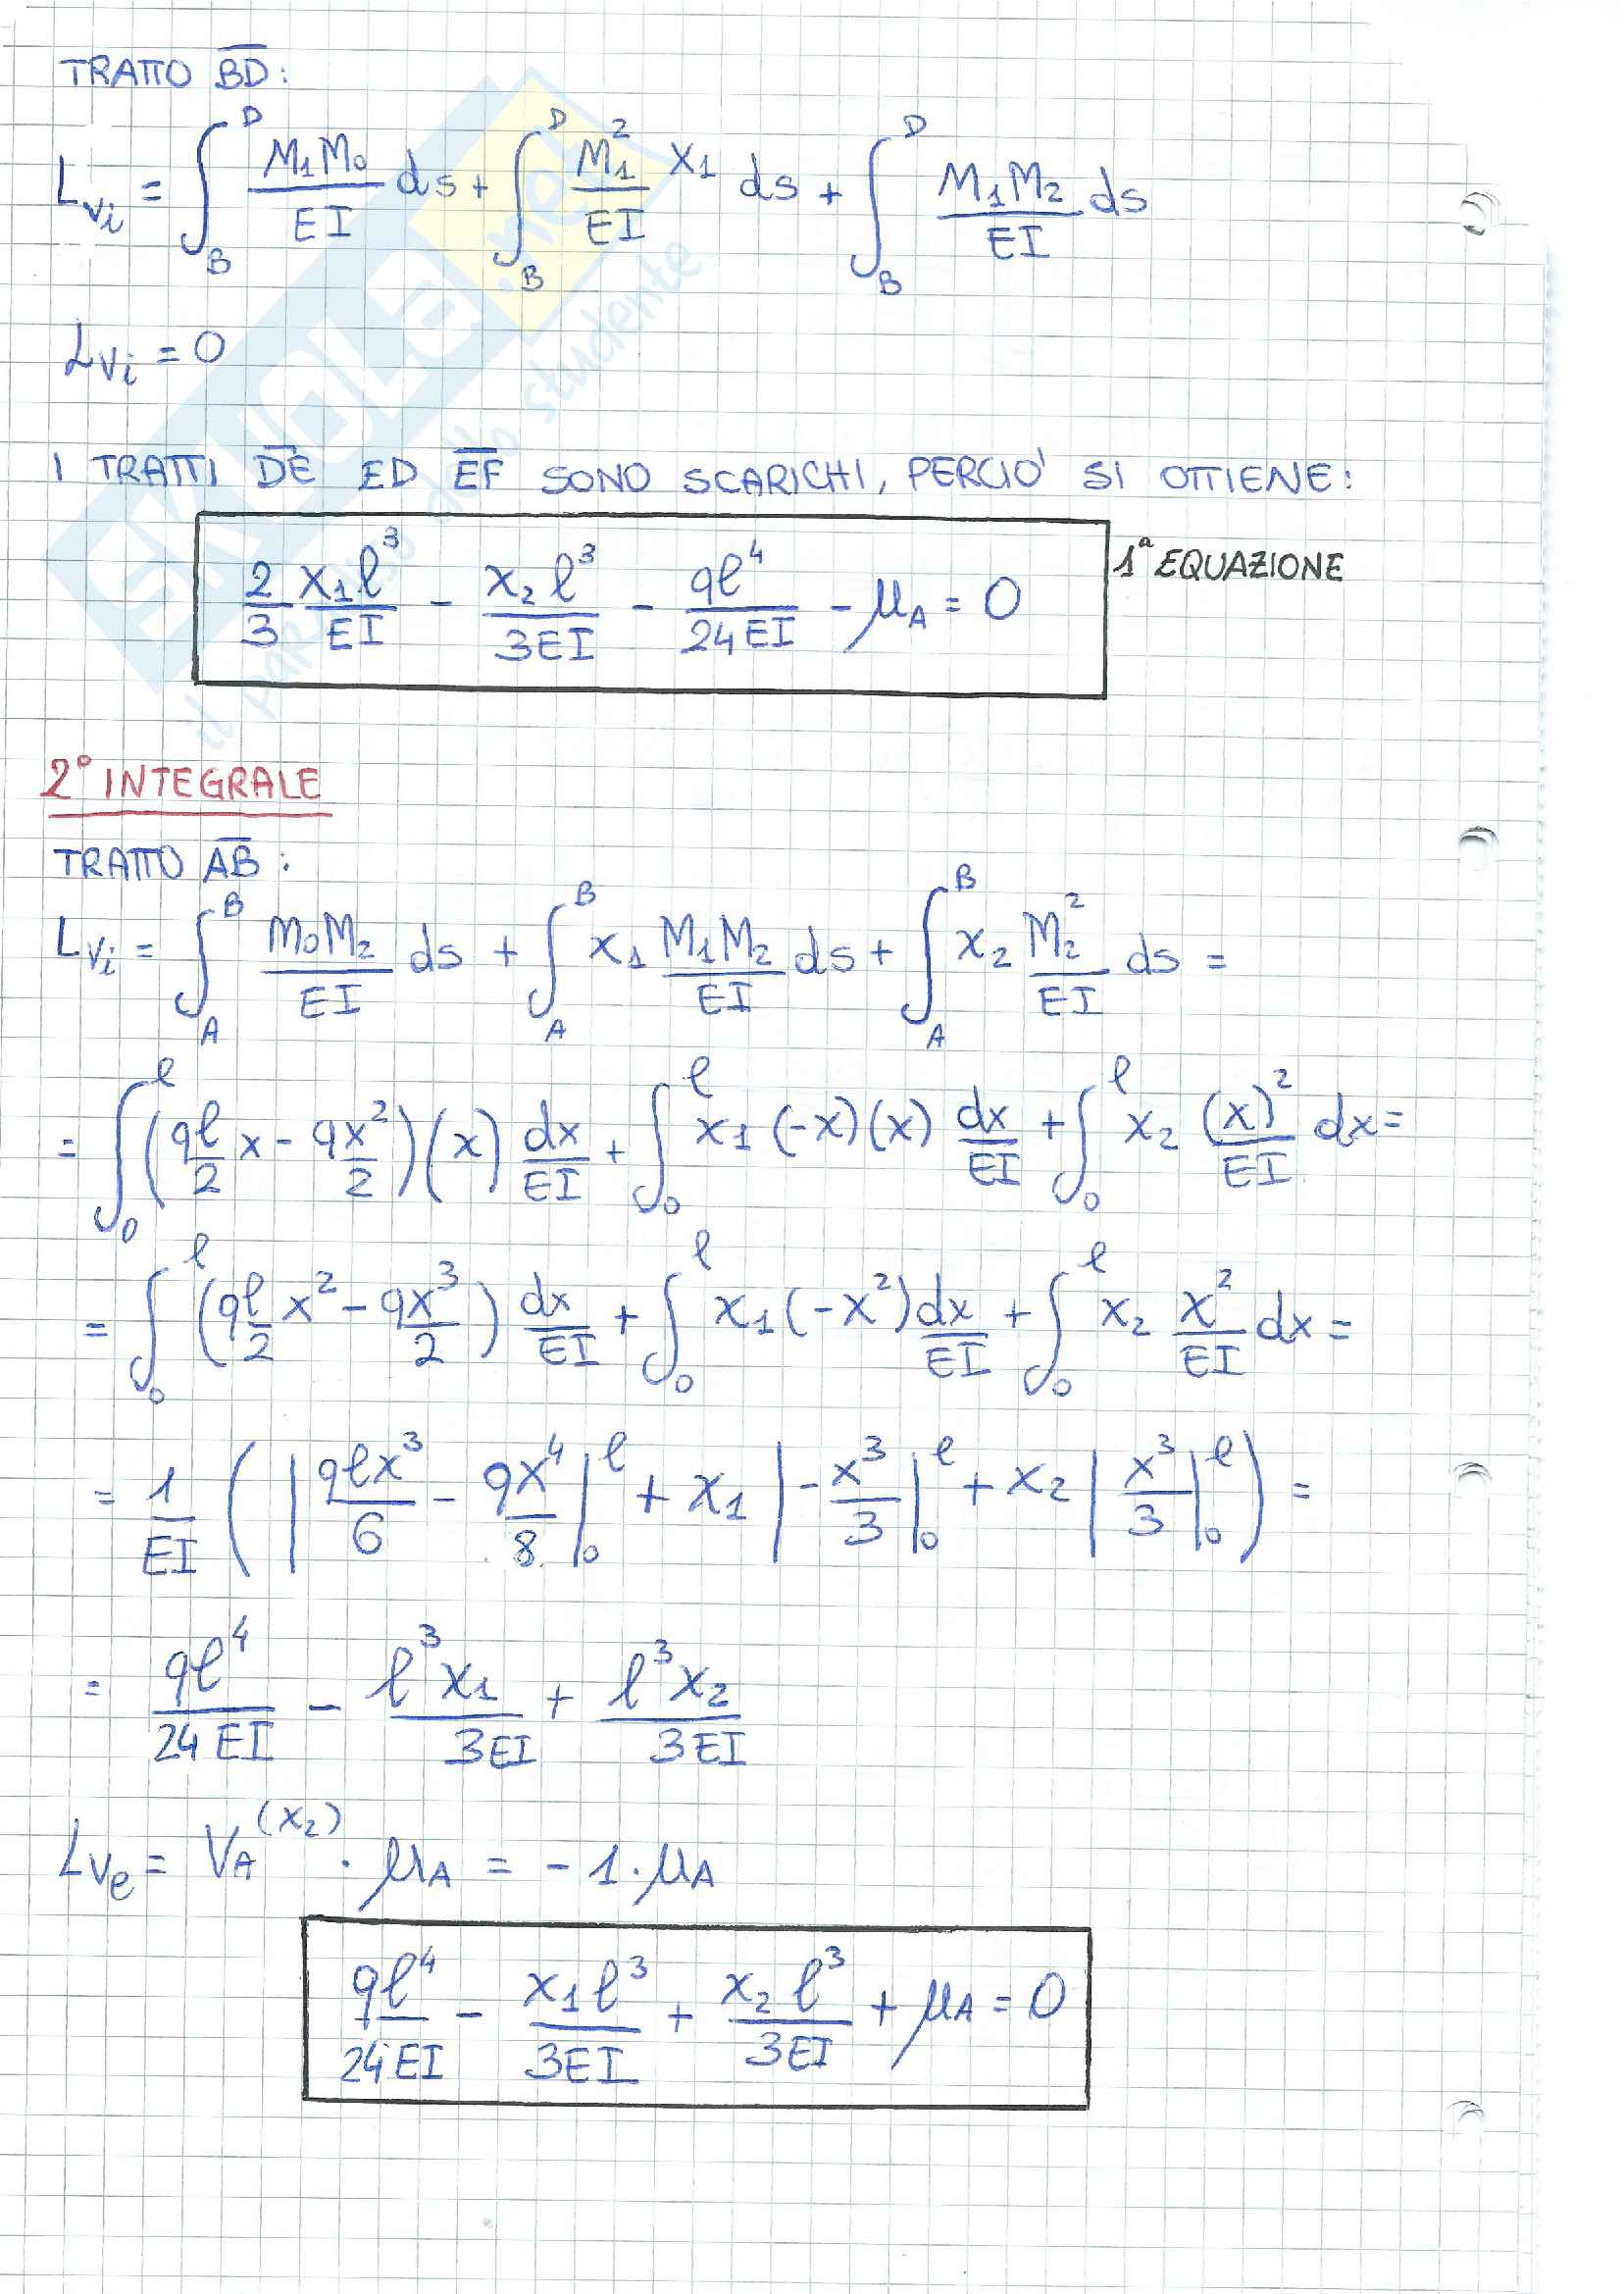 TRATTO B̅D̅:
L_{Vi} = ∫_B^D M₁M₀/EI ds + ∫_B^D M₁²/EI X₁ ds + ∫_B^D M₁M₂/EI ds
L_{Vi} = 0
I TRATTI D̅E̅ ED E̅F̅ SONO SCARICHI, PERCIO' SI OTTIENE:
2/3 X₁ℓ³/EI - X₂ℓ³/3EI - qℓ⁴/24EI - μ_A = 0 1ª EQUAZIONE
2° INTEGRALE
TRATTO A̅B̅:
L_{Vi} = ∫_A^B M₀M₂/EI ds + ∫_A^B X₁ M₁M₂/EI ds + ∫_A^B X₂ M₂²/EI ds =
= ∫₀^ℓ (qℓ/2 x - qx²/2)(x) dx/EI + ∫₀^ℓ X₁(-x)(x) dx/EI + ∫₀^ℓ X₂ (x)²/EI dx =
= ∫₀^ℓ (qℓ/2 x² - qx³/2) dx/EI + ∫₀^ℓ X₁(-x²) dx/EI + ∫₀^ℓ X₂ x²/EI dx =
= 1/EI ( | qℓx³/6 - qx⁴/8 |₀^ℓ + X₁ | -x³/3 |₀^ℓ + X₂ | x³/3 |₀^ℓ ) =
= qℓ⁴/24EI - ℓ³X₁/3EI + ℓ³X₂/3EI
L_{Ve} = V_A^{(X₂)} · μ_A = -1·μ_A
qℓ⁴/24EI - X₁ℓ³/3EI + X₂ℓ³/3EI + μ_A = 0
SKUOLA.net
il paradiso dello studente